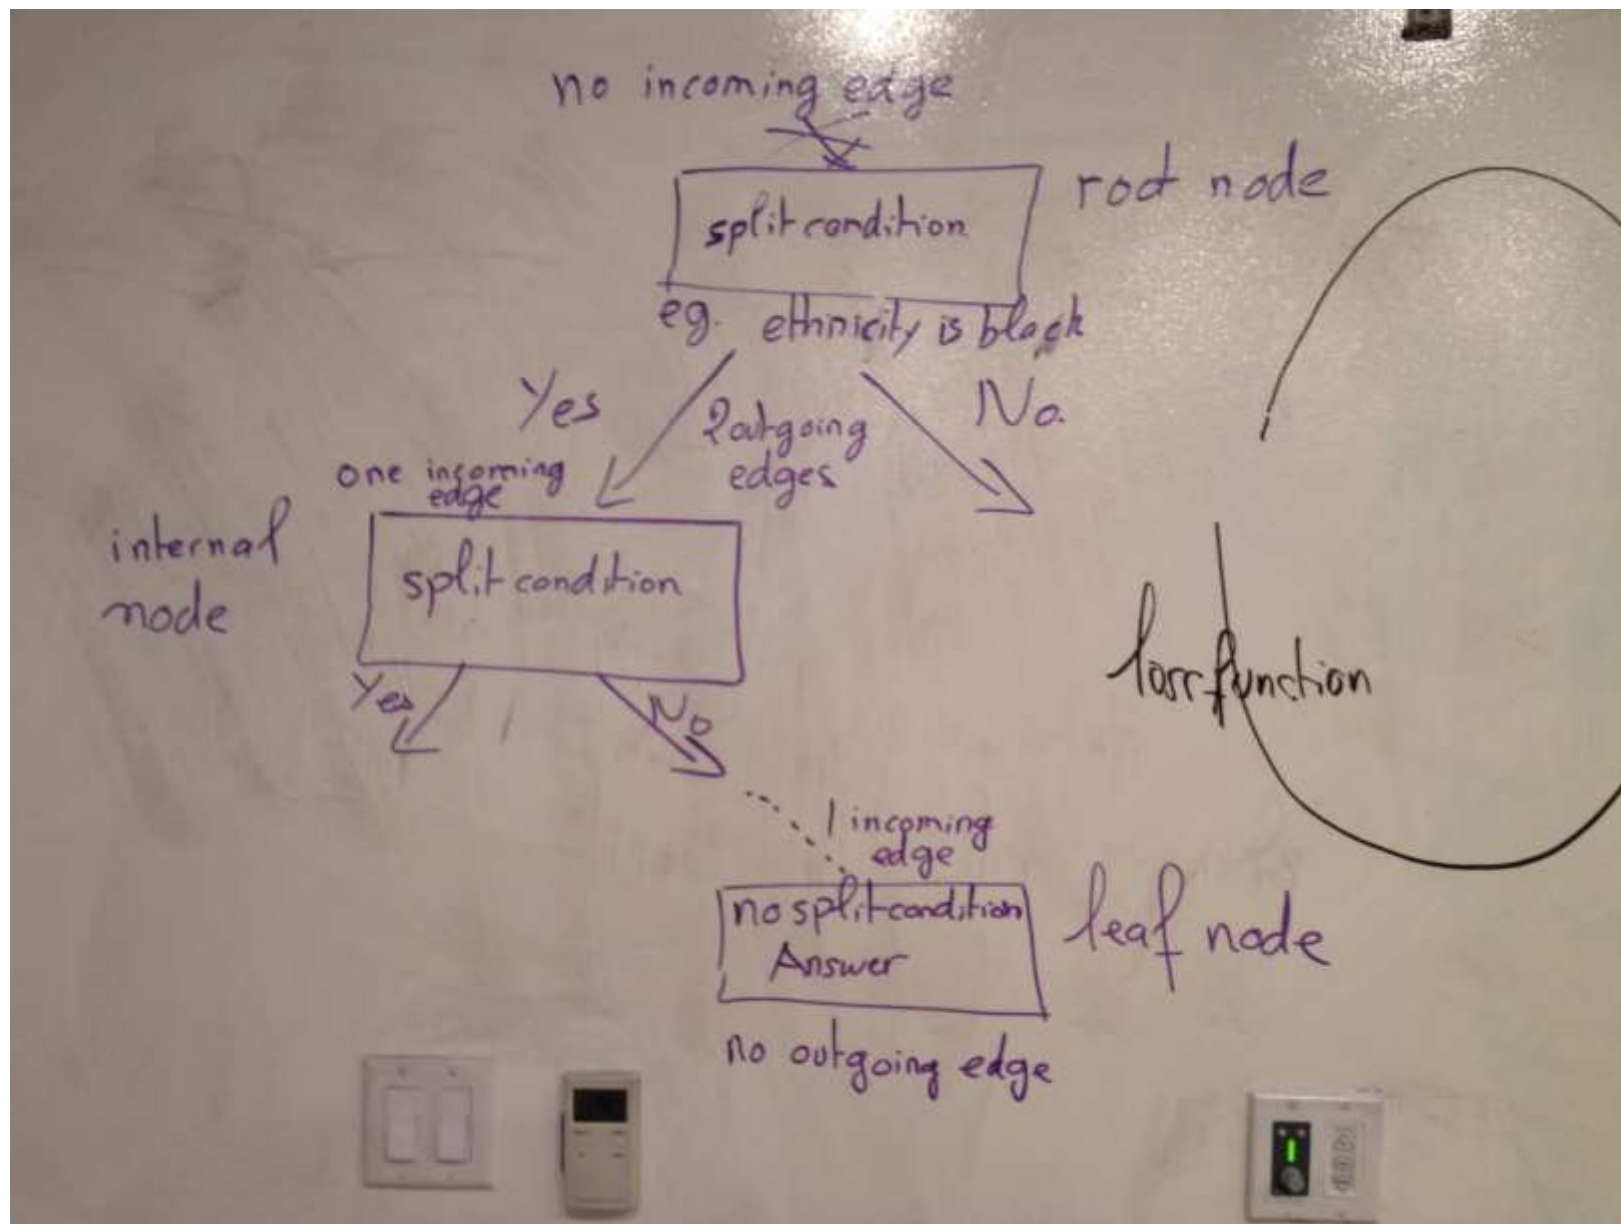 no incoming edge
root node
split condition
eg. ethnicity is black
Yes
No.
2 outgoing
edges
one incoming
edge
internal
node
split condition
Yes
No
loss function
1 incoming
edge
no split condition
Answer
leaf node
no outgoing edge